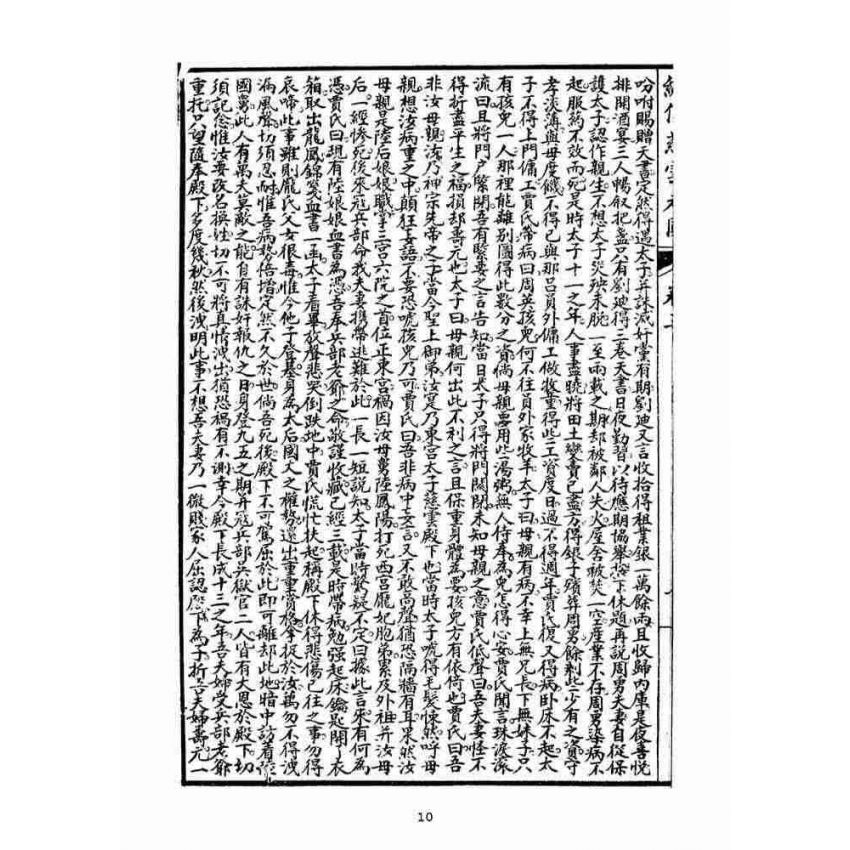 吩咐賜贈天書定然得遇太子并誅滅奸黨有期劉廸又言收拾得祖業銀一萬餘兩且收歸內庫是夜喜悅
排開酒宴三人暢叙把盞只有劉廸得三卷天書日夜勤習以待應期協舉按下休題再說周男夫妻自從保
護太子認作親生不想太子災殃未脫一至兩載之期却被鄰人失火屋舍被焚一空產業不存周男染病不
起服药不效而死是時太子十一之年人事盡曉將田土變賣已盡方得銀子殯葬周男餘剩些少有之資守
孝淡薄與母度饑不得已與那呂員外傭工做牧童得些工資度日過不得週年賈氏復又得病卧床不起太
子不得上門傭工賈氏帶病曰周英孩兒何不往員外家牧羊太子曰母親有病不幸上無兄長下無妹子只
有孩兒一人那裡能離别圖得此數分之資倘母親要用些湯粥無人侍奉為兒怎得心安賈氏聞言珠淚派
流曰且將門户緊閉吾有緊要之言告知當日太子只得將門關閉未知母親之意賈氏低聲曰吾夫妻怪不
得折盡平生之福損却壽元也太子曰母親何出此不利之言且保重身體為要孩兒方有依倚也賈氏曰吾
非汝母親汝乃神宗先帝之子當今聖上御弟汝寔乃東宮太子慈雲殿下也當時太子唬得毛髮悚然呼母
親想汝病重之中顛狂妄語不要恐唬孩兒乃可賈氏曰吾非病中妄言又不敢高聲猶恐隔墻有耳果然汝
母親是陸后娘娘職掌三宮六院之首位正東宮禍因汝母舅陸鳳陽打死西宮龐妃胞弟累及外祖并汝母
后一經慘死後來冦兵部命我夫妻携帶逃難於此一長一短說知太子當時驚疑不定曰據此言來有何為
憑賈氏曰現有陸娘娘血書為憑吾奉兵部老爺之命敬謹收藏已經三載是時帶病勉强起床鑰匙開了衣
箱取出龍鳳錦箋血書一函太子看畢放聲悲哭倒跌地中賈氏慌忙扶起稱殿下休得悲傷已往之事勿得
哀啼此事雖則龐氏父女很毒惟今他子登基身為太后國丈之權勢還出重重賞格拿捉於汝萬勿不得洩
漏風聲切須忍耐惟吾病勢倍增定然不久於世倘吾死後殿下不可駕屈於此即可離却此地暗中訪着陸
國舅此人有萬夫莫敵之能自有誅奸報仇之日身登九五之期并冦兵部吳獄官二人皆有大恩於殿下切
須記念惟汝要改名换姓切不可將真情洩出猶恐禍有不測幸今殿下長成十三之年吾夫婦受兵部老爺
重托只望隨奉殿下多度幾秋然後洩明此事不想吾夫妻乃一微賤家人屈認殿下為子折了夫婦壽元一
10